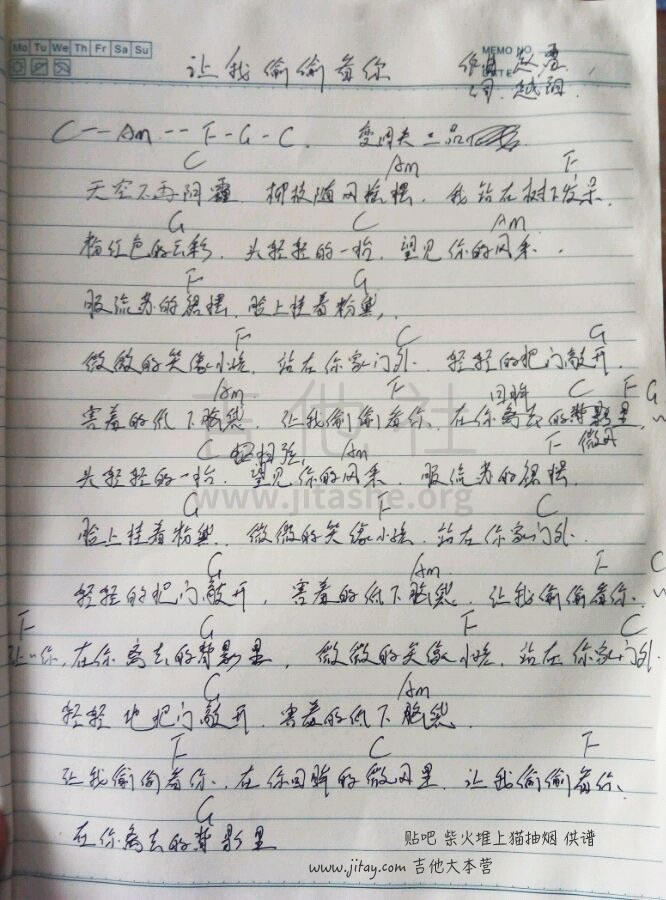 Mo Tu We Th Fr Sa Su
MEMO NO.
DATE
让我偷偷看你
作曲 赵雷
词 赵雷
C -- Am -- F - G - C. 变调夹二品
C Am F
天空不再阴霾 柳枝随风摇摆. 我站在树下发呆.
G C Am
粉红色的云彩. 头轻轻的一抬. 望见你的风采.
F G
服流苏的裙摆. 脸上挂着粉黛.
F C G
微微的笑像小孩. 站在你家门外. 轻轻的把门敲开.
Am F 回眸 C F G
害羞的低下脑袋. 让我偷偷看你. 在你离去的背影里. ~
C Am F 微风
头轻轻的一抬. 望见你的风采. 服流苏的裙摆.
G F C
脸上挂着粉黛. 微微的笑像小孩. 站在你家门外.
G Am F C
轻轻的把门敲开. 害羞的低下脑袋. 让我偷偷看你. ~
F G F C
让~你. 在你离去的背影里. 微微的笑像小孩. 站在你家门外.
G Am
轻轻地把门敲开. 害羞的低下脑袋.
F C F
让我偷偷看你. 在你回眸的微风里. 让我偷偷看你.
G
在你离去的背影里
吉他社
www.jitashe.org
贴吧 柴火堆上猫抽烟 供谱
www.jitay.com 吉他大本营